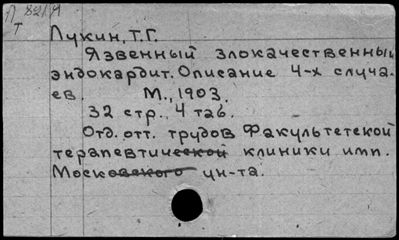 Л 821/1
Т
Лукин, Т.Г.
Язвенный злокачественный
эндокардит. Описание 4-х случа-
ев. М., 1903.
32 стр. 4 таб.
Отд. отт. трудов Факультетской
терапевтической клиники имп.
Московского ун-та.